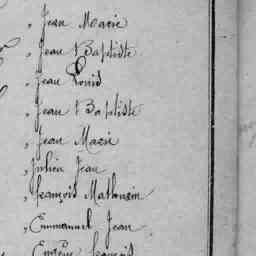 , Jean Marie
, Jean Baptiste
, Jean Louis
, Jean Baptiste
, Jean Marie
, Julien Jean
, François Mathurin
, Emmanuel Jean
François